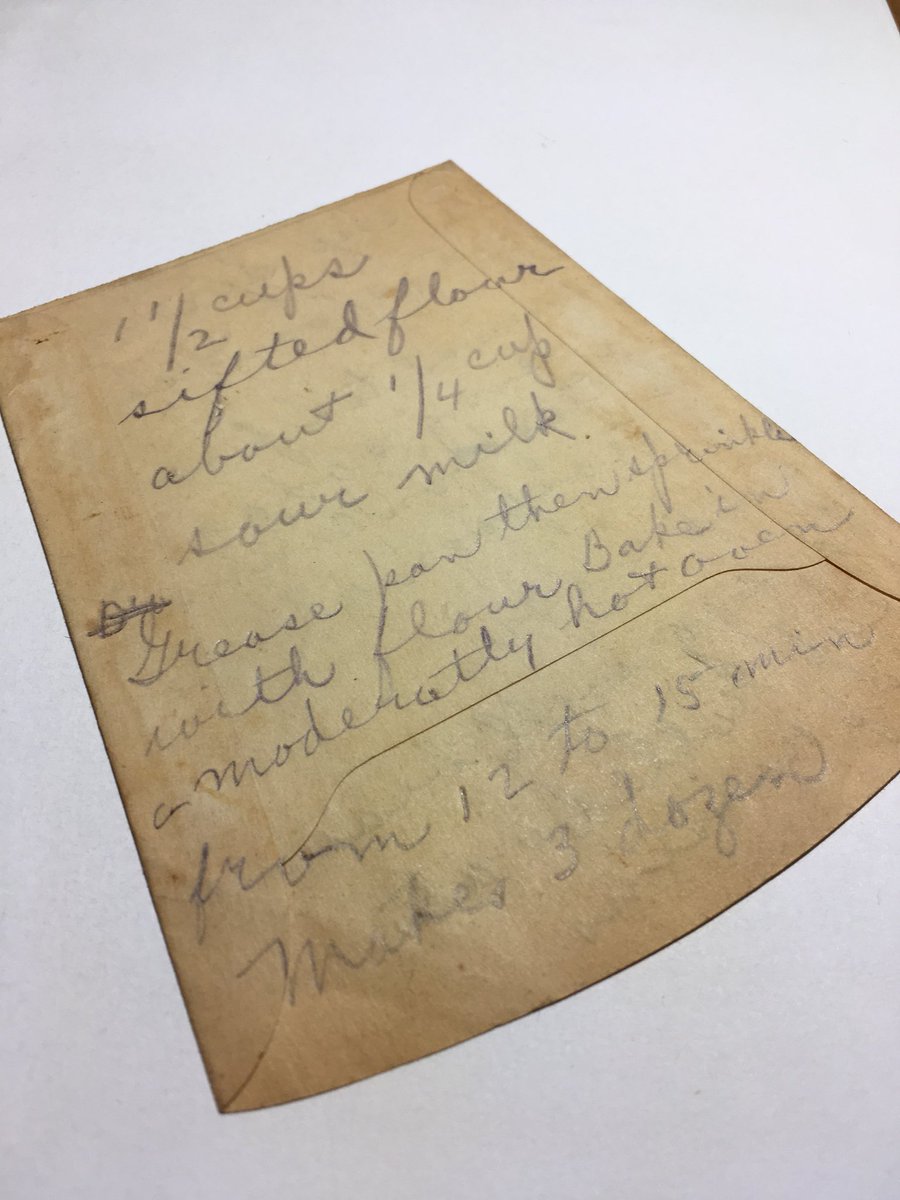 1 1/2 cups
sifted flour
about 1/4 cup
sour milk.
Grease pan then sprinkle
with flour Bake in
a moderatly hot oven
from 12 to 15 min
Makes 3 dozen